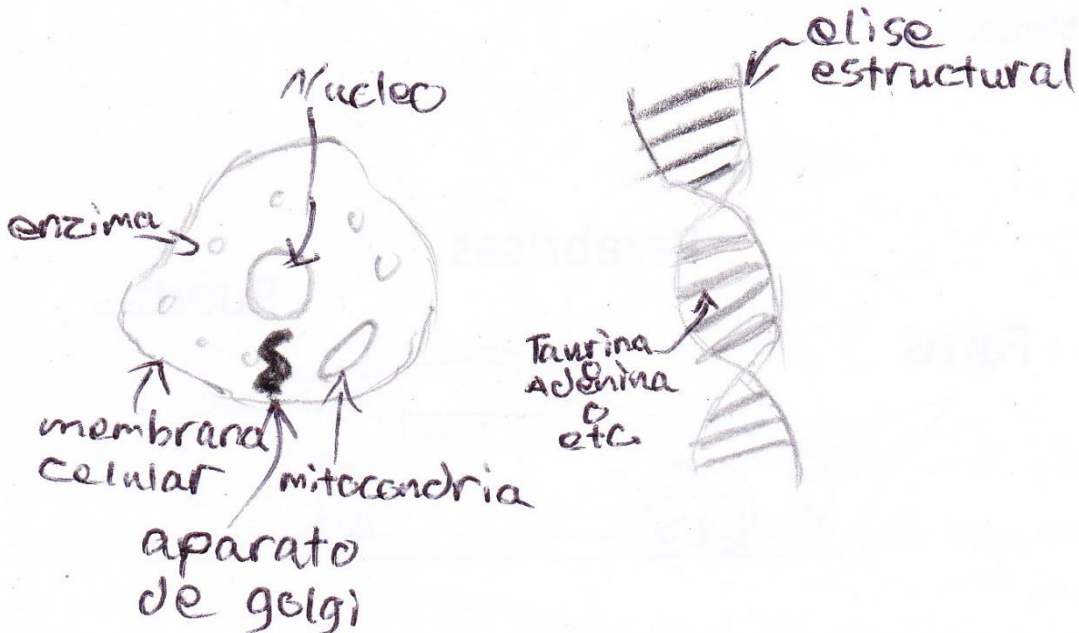 Nucleo
enzima
membrana
celular
mitocondria
aparato
de golgi
elise
estructural
Taurina
o
Adenina
o
etc